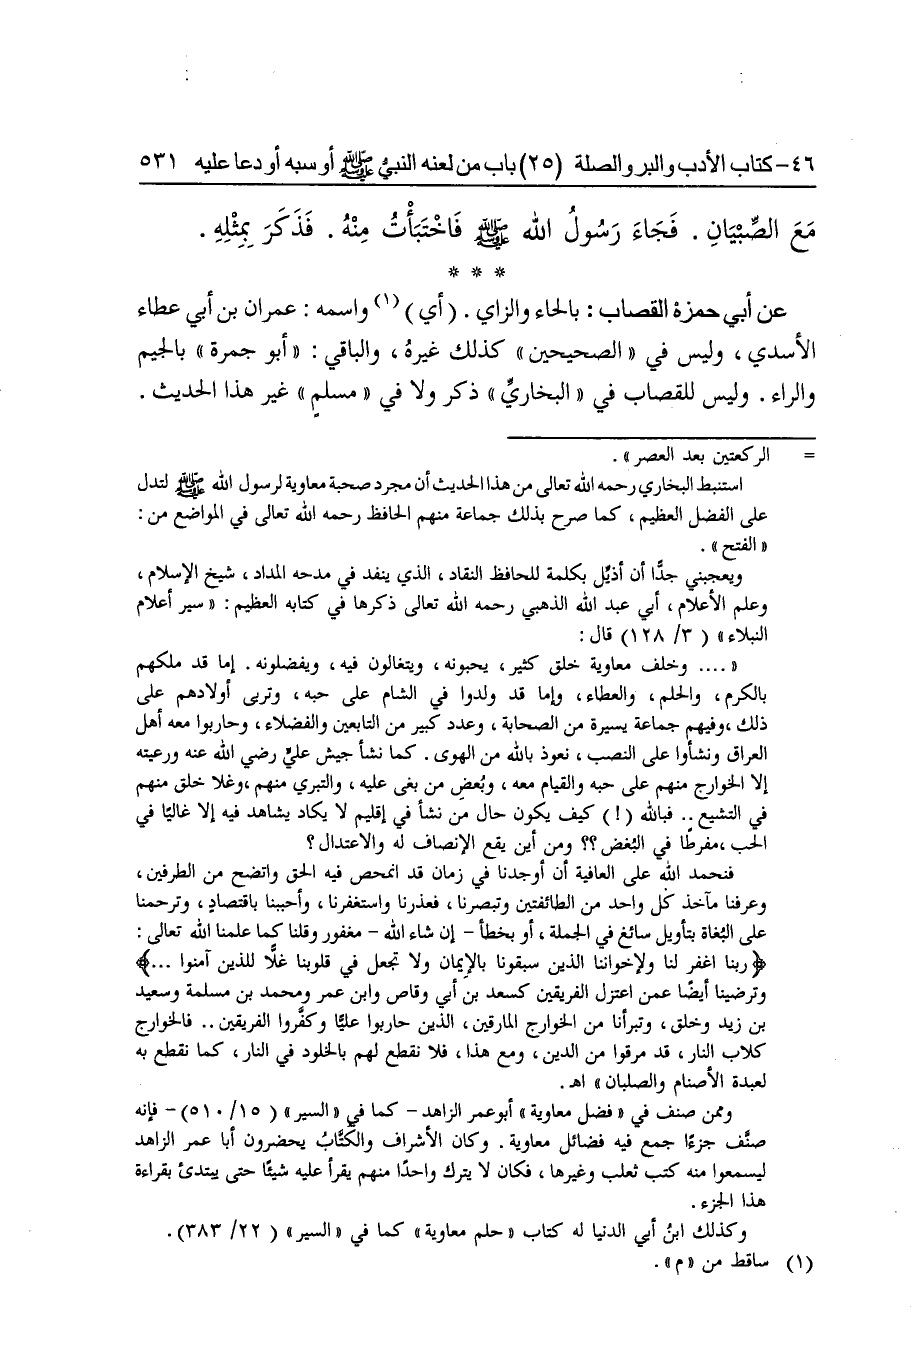 ٤٦- كتاب الأدب والبر والصلة (٢٥) باب من لعنه النبيُّ ﷺ أو سبه أو دعا عليه ٥٣١
مَعَ الصِّبْيَانِ. فَجَاءَ رَسُولُ الله ﷺ فَاخْتَبَأْتُ مِنْهُ. فَذَكَرَ بِمِثْلِهِ.
* * *
عن أبي حمزة القصاب: بالحاء والزاي. (أي)(١) واسمه: عمران بن أبي عطاء
الأسدي، وليس في «الصحيحين» كذلك غيرهُ، والباقي: «أبو جمرة» بالجيم
والراء. وليس للقصاب في «البخاريِّ» ذكر ولا في «مسلمٍ» غير هذا الحديث.
= الركعتين بعد العصر».
استنبط البخاري رحمه الله تعالى من هذا الحديث أن مجرد صحبة معاوية لرسول الله ﷺ لتدل
على الفضل العظيم، كما صرح بذلك جماعة منهم الحافظ رحمه الله تعالى في المواضع من:
«الفتح».
ويعجبني جدًّا أن أذيِّل بكلمة للحافظ النقاد، الذي ينفد في مدحه المداد، شيخ الإسلام،
وعلم الأعلام، أبي عبد الله الذهبي رحمه الله تعالى ذكرها في كتابه العظيم: «سير أعلام
النبلاء» (٣/ ١٢٨) قال:
«.... وخلف معاوية خلق كثير، يحبونه، ويتغالون فيه، ويفضلونه. إما قد ملكهم
بالكرم، والحلم، والعطاء، وإما قد ولدوا في الشام على حبه، وتربى أولادهم على
ذلك، وفيهم جماعة يسيرة من الصحابة، وعدد كبير من التابعين والفضلاء، وحاربوا معه أهل
العراق ونشأوا على النصب، نعوذ بالله من الهوى. كما نشأ جيش عليٍّ رضي الله عنه ورعيته
إلا الخوارج منهم على حبه والقيام معه، وبُغضِ من بغى عليه، والتبري منهم، وغلا خلق منهم
في التشيع .. فبالله (!) كيف يكون حال من نشأ في إقليم لا يكاد يشاهد فيه إلا غاليًا في
الحب، مفرطًا في البُغض؟؟ ومن أين يقع الإنصاف له والاعتدال؟
فنحمد الله على العافية أن أوجدنا في زمان قد انمحص فيه الحق واتضح من الطرفين،
وعرفنا مآخذ كل واحد من الطائفتين وتبصرنا، فعذرنا واستغفرنا، وأحببنا باقتصادٍ، وترحمنا
على البُغاة بتأويل سائغ في الجملة، أو بخطأ - إن شاء الله - مغفور وقلنا كما علمنا الله تعالى:
﴿ربنا اغفر لنا ولإخواننا الذين سبقونا بالإيمان ولا تجعل في قلوبنا غلًّا للذين آمنوا ...﴾
وترضينا أيضًا عمن اعتزل الفريقين كسعد بن أبي وقاص وابن عمر ومحمد بن مسلمة وسعيد
بن زيد وخلق، وتبرأنا من الخوارج المارقين، الذين حاربوا عليًّا وكفَّروا الفريقين .. فالخوارج
كلاب النار، قد مرقوا من الدين، ومع هذا، فلا نقطع لهم بالخلود في النار، كما نقطع به
لعبدة الأصنام والصلبان» اهـ.
وممن صنف في «فضل معاوية» أبوعمر الزاهد - كما في «السير» (١٥/ ٥١٠) - فإنه
صنَّف جزءًا جمع فيه فضائل معاوية. وكان الأشراف والكُتَّابُ يحضرون أبا عمر الزاهد
ليسمعوا منه كتب ثعلب وغيرها، فكان لا يترك واحدًا منهم يقرأ عليه شيئًا حتى يبتدئ بقراءة
هذا الجزء.
وكذلك ابنُ أبي الدنيا له كتاب «حلم معاوية» كما في «السير» (٢٢/ ٣٨٣).
(١) ساقط من «م».